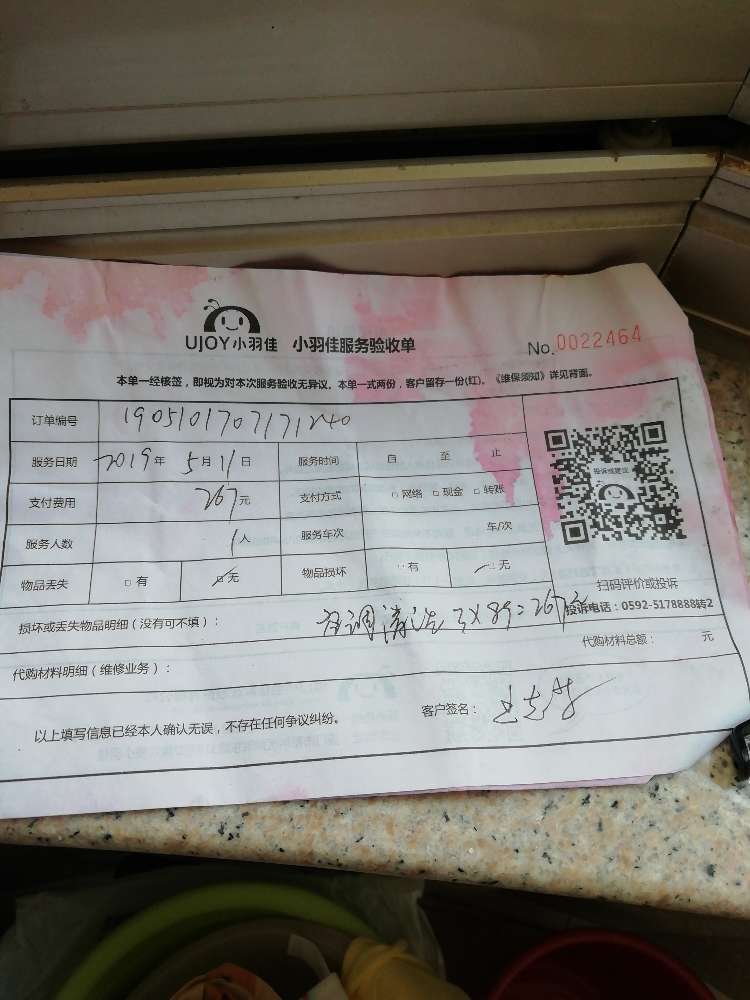 UJOY小羽佳 小羽佳服务验收单 No.0022464
本单一经核签，即视为对本次服务验收无异议。本单一式两份，客户留存一份(红)。《维保须知》详见背面。
订单编号 1905101707171240
服务日期 2019年 5月11日 服务时间 自 至 止
支付费用 267元 支付方式 □网络 □现金 □转账
服务人数 1人 服务车次 车/次
物品丢失 □有 □无 物品损坏 □有 □无
投诉或建议
扫码评价或投诉
投诉电话：0592-5178888转2
损坏或丢失物品明细（没有可不填）： 空调清洗 3×89=267元
代购材料明细（维修业务）： 代购材料总额： 元
以上填写信息已经本人确认无误，不存在任何争议纠纷。 客户签名：